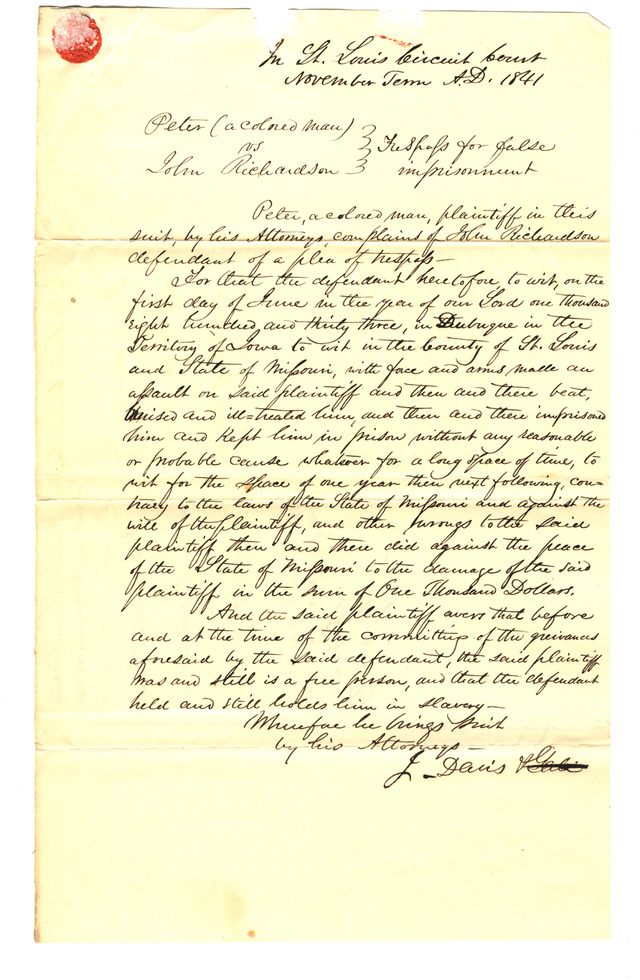 In St. Louis Circuit Court
November Term A.D. 1841
Peter (a colored man)
vs
Trespass for false
John Richardson
imprisonment
Peter, a colored man, plaintiff in this
suit, by his Attorneys, complains of John Richardson
defendant of a plea of trespass—
For that the defendant heretofore, to wit, on the
first day of June in the year of our Lord one thousand
eight hundred and thirty three, in Dubuque in the
Territory of Iowa to wit in the County of St. Louis
and State of Missouri, with force and arms, made an
assault on said plaintiff and then and there beat,
bruised and ill=treated him, and then and there imprisoned
him and kept him in prison without any reasonable
or probable cause whatever for a long space of time, to
wit for the space of one year then next following, con-
trary to the laws of the State of Missouri and against the
will of the plaintiff, and other wrongs to the said
plaintiff then and there did against the peace
of the State of Missouri to the damage of the said
plaintiff in the sum of One Thousand Dollars.
And the said plaintiff avers that before
and at the time of the committing of the greivances
aforesaid by the said defendant, the said plaintiff
was and still is a free person, and that the defendant
held and still holds him in slavery—
Wherefore he brings suit
by his Attorneys—
J. Davis &